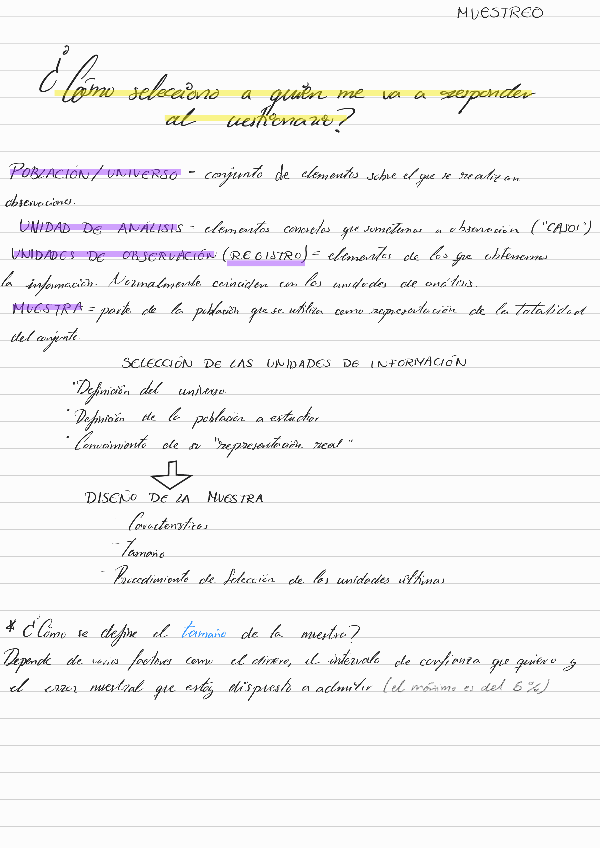 MUESTREO
¿Cómo selecciono a quién me va a responder
al cuestionario?
POBLACIÓN/UNIVERSO - conjunto de elementos sobre el que se realizan
observaciones.
UNIDAD DE ANÁLISIS - elementos concretos que sometemos a observación ("CASOS")
UNIDADES DE OBSERVACIÓN (REGISTRO) = elementos de los que obtenemos
la información. Normalmente coinciden con las unidades de análisis.
MUESTRA = parte de la población que se utiliza como representación de la totalidad
del conjunto
SELECCIÓN DE LAS UNIDADES DE INFORMACIÓN
· Definición del universo.
· Definición de la población a estudiar
· Conocimiento de su "representación real"
DISEÑO DE LA MUESTRA
Características
- Tamaño
- Procedimiento de Selección de las unidades últimas
* ¿Cómo se define el tamaño de la muestra?
Depende de varios factores como el dinero, el intervalo de confianza que quiero y
el error muestral que estoy dispuesto a admitir (el máximo es del %)